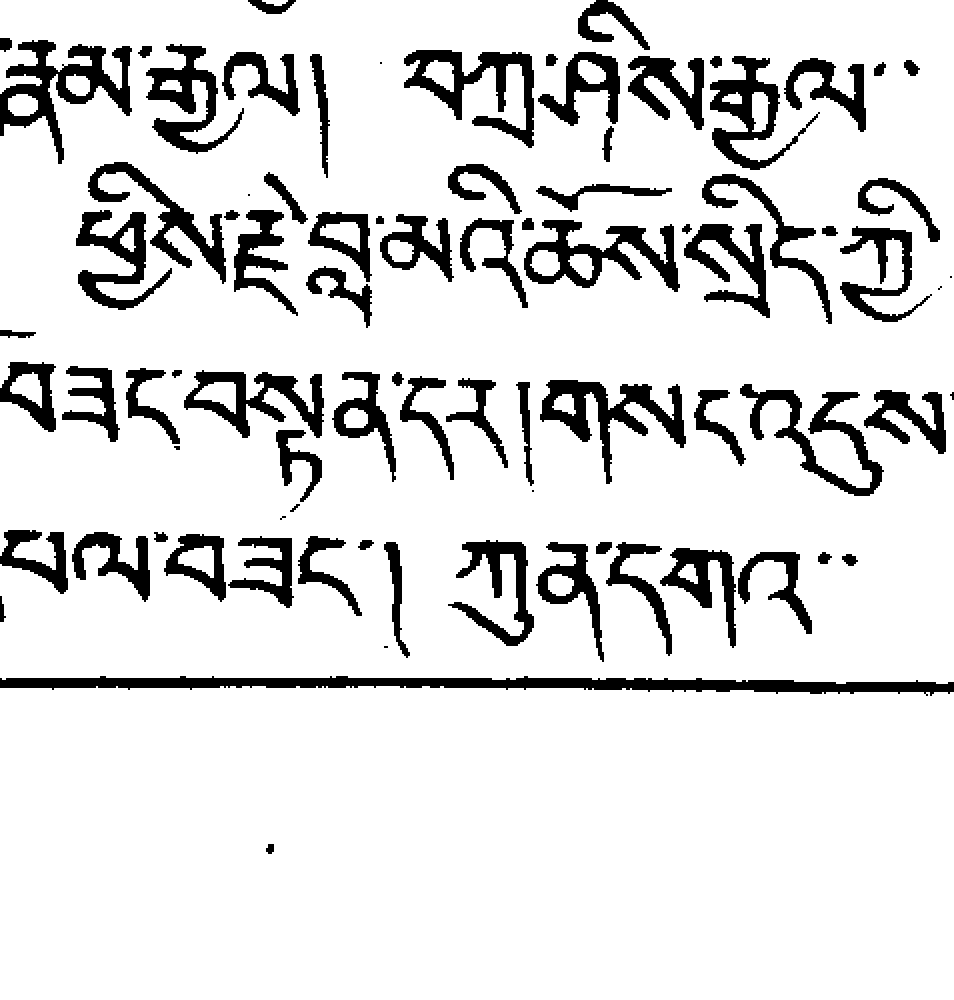 རྣམ་རྒྱལ། བཀྲ་ཤིས་རྒྱལ་་
ཕྱིས་རྗེ་བླ་མའི་ཆོས་སྲིད་ཀྱི
བཟང་བསྟན་དར།གསང་འདུས་
དཔལ་བཟང་། ཀུན་དགའ་་